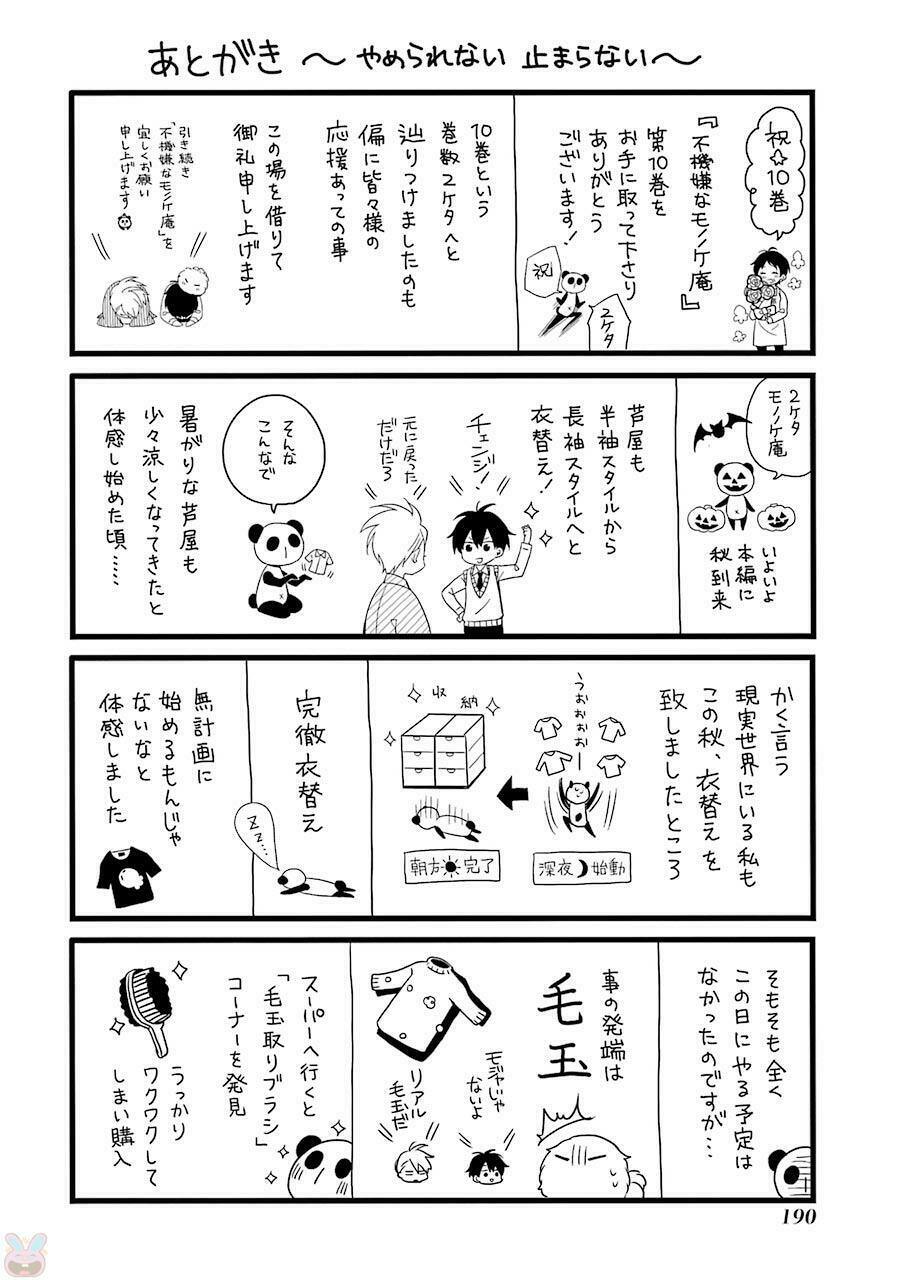 あとがき 〜やめられない 止まらない〜
祝☆10巻
『不機嫌なモノノケ庵』
第10巻を
お手に取って下さり
ありがとう
ございます！
祝
2ケタ
10巻という
巻数2ケタへと
辿りつけましたのも
偏に皆々様の
応援あっての事
この場を借りて
御礼申し上げます
引き続き
「不機嫌なモノノケ庵」を
宜しくお願い
申し上げます
2ケタ
モノノケ庵
いよいよ
本編に
秋到来
芦屋も
半袖スタイルから
長袖スタイルへと
衣替え！
チェンジ！
元に戻った
だけだろ
そんな
こんなで
暑がりな芦屋も
少々涼しくなってきたと
体感し始めた頃……
かく言う
現実世界にいる私も
この秋、衣替えを
致しましたところ
うおぉぉぉー
深夜 始動
収納
朝方 完了
完徹衣替え
ZZ…
無計画に
始めるもんじゃ
ないなと
体感しました
そもそも全く
この日にやる予定は
なかったのですが…
事の発端は
毛玉
モジャじゃ
ないよ
リアル
毛玉だ
スーパーへ行くと
「毛玉取りブラシ」
コーナーを発見
うっかり
ワクワクして
しまい購入
190